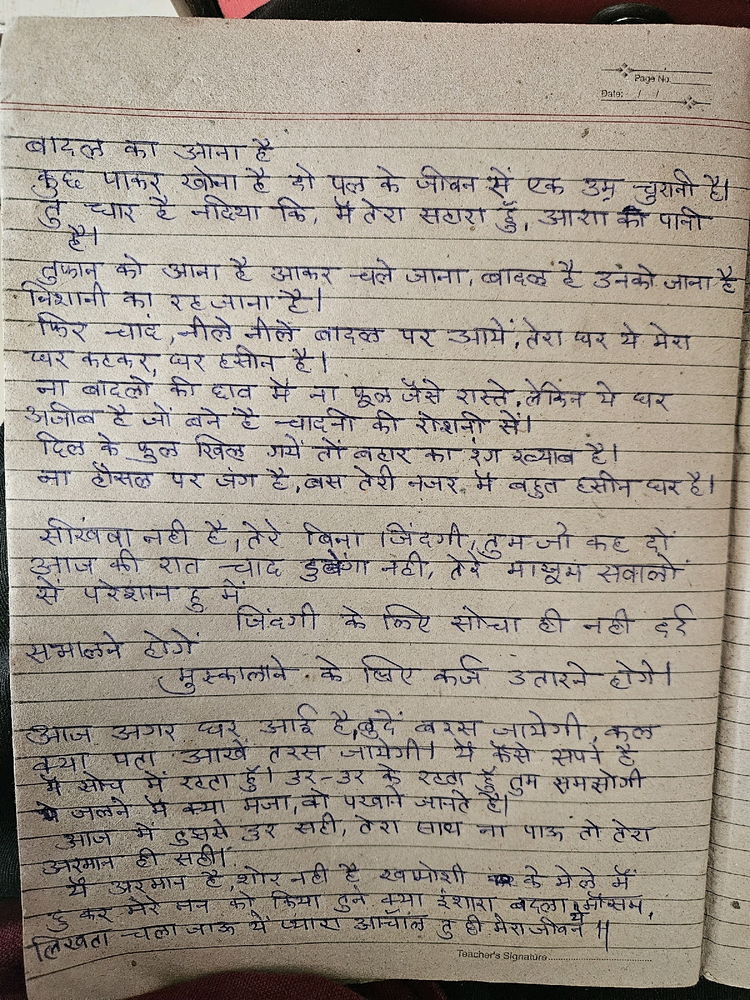 Page No.
Date: / /
बादल का आना है
कुछ पाकर खोना है दो पल के जीवन से एक उम्र चुरानी है।
तु चार है नदिया कि, मैं तेरा सहारा हुँ, आशा की पानी
है।
तुफान को आना है आकर चले जाना, बादल है उनको जाना है
निशानी का रह जाना है।
फिर चाद, नीले नीले बादल पर आयें, तेरा घर ये मेरा
घर कहकर, घर हसीन है।
ना बादलो की छाव मै ना फूल जैसे रास्ते, लेकिन ये घर
अजीब है जो बने है चादनी की रोशनी सें।
दिल के फुल खिल गये तों बहार का रंग ख्याब है।
ना हौसल पर जंग है, बस तेरी नजर मै बहुत हसीन घर है।
नही है, तेरे बिना जिंदगी, तुम जो कह दो
आज की रात चाद डुबेगा नही, तेरे मासूम सवालो
से परेशान हु में
जिंदगी के लिए सोचा ही नही दर्द
समालने होगें
मुस्कालाने के लिए कर्ज उतारने होगे।
आज अगर घर आई है, बुदें बरस जायेगी, कल
क्या पता आखें तरस जायेगी। ये कैसे सपने है
मै सोच में रहता हुँ। डर-डर के रहता हुँ तुम समझोगी
जलने मै क्या मजा, वो परवाने जानते है।
आज में तुमसे दुर सही, तेरा साथ ना पाऊ तो तेरा
अरमान ही सही।
ये अरमान है, शोर नही है खामोशी के मेले में
छु कर मेरे मन को किया तुने क्या इंशारा बदला ये मौसम,
लिखता चला जाऊ यें प्यारा आचॅंल तु ही मेरा जीवन॥
Teacher's Signature